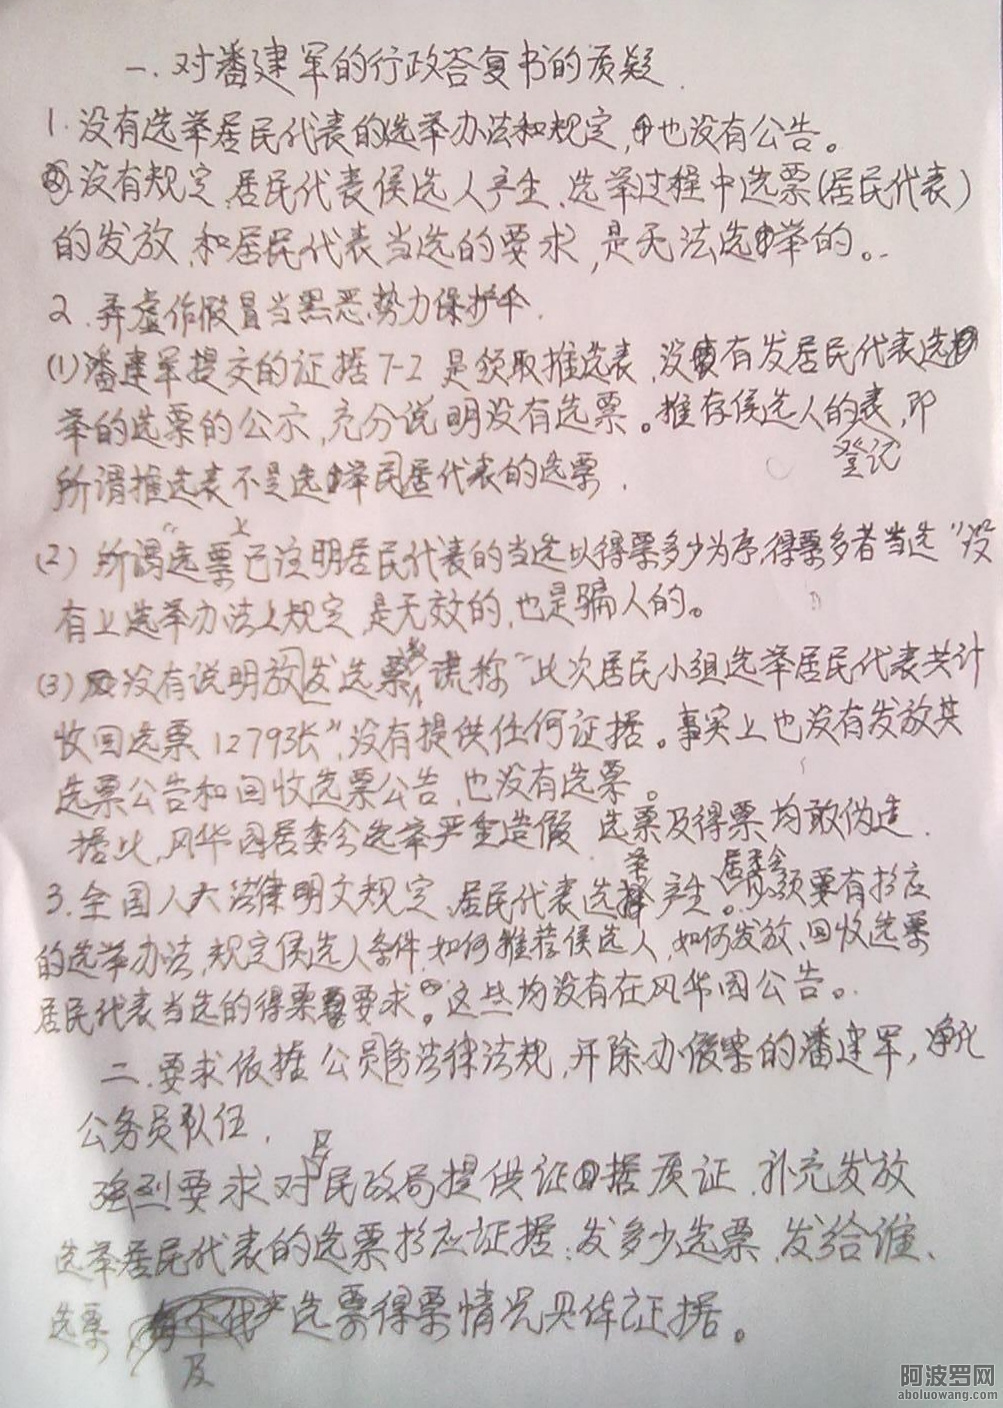 一.对潘建军的行政答复书的质疑.
1.没有选举居民代表的选举办法和规定,也没有公告。
没有规定.居民代表侯选人产生.选举过程中选票(居民代表)
的发放.和居民代表当选的要求,是无法选举的。
2.弄虚作假冒当黑恶势力保护伞.
(1)潘建军提交的证据7-2是领取推选表.没有发居民代表选
举的选票的公示,充分说明没有选票。推存侯选人的表,即
登记
所谓推选表不是选举民居代表的选票.
(2)所谓"选票"上已注明居民代表的当选以得票多少为序,得票多者当选"没
有上选举办法上规定,是无效的,也是骗人的。
(3)没有说明放发选票数谎称"此次居民小组选举居民代表共计
收回选票12793张",没有提供任何证据。事实上也没有发放其
选票公告和回收选票公告,也没有选票。
据此,风华园居委会选举严重造假.选票及得票均敢伪造.
举 居委会
3.全国人大法律明文规定.居民代表选产生。必须要有相应
的选举办法,规定侯选人条件.如何推荐侯选人,如何发放、回收选票
居民代表当选的得票要求。这些均没有在风华园公告。
二.要求依据公务员法律法规,开除办假票的潘建军,净化
公务员队伍.
及
强烈要求对民政局提供证据质证.补充发放
选举居民代表的选票相应证据:发多少选票.发给谁、
选票 选票得票情况具体证据。
及
阿波罗网
aboluowang.com